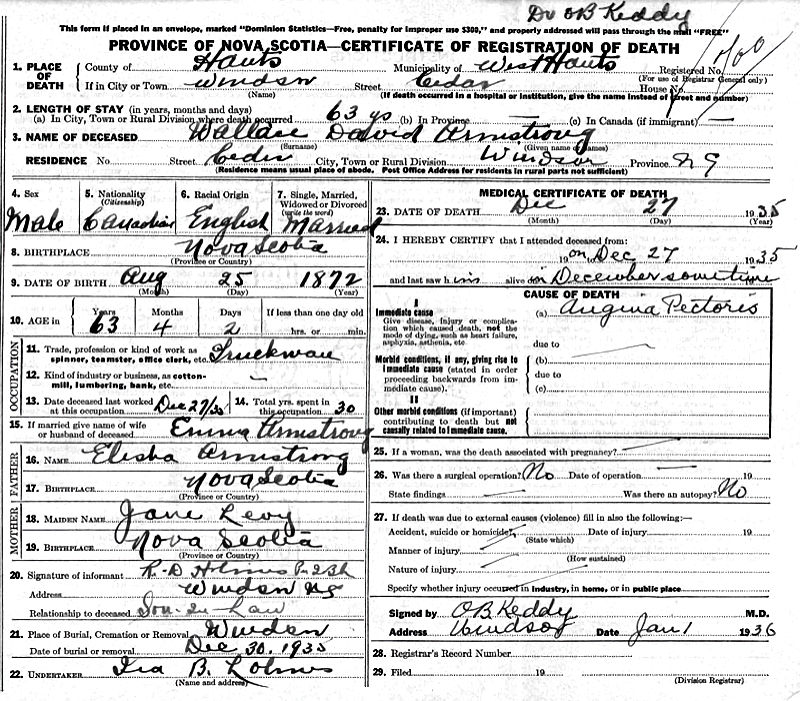 Dr OB Keddy
This form if placed in an envelope, marked "Dominion Statistics—Free, penalty for improper use $300," and properly addressed will pass through the mail "FREE"
PROVINCE OF NOVA SCOTIA—CERTIFICATE OF REGISTRATION OF DEATH
1. PLACE OF DEATH
County of Hants Municipality of West Hants Registered No.
(For use of Registrar General only)
If in City or Town Windsor Street Cedar House No.
(Name) (If death occurred in a hospital or institution, give the name instead of street and number)
2. LENGTH OF STAY (in years, months and days)
(a) In City, Town or Rural Division where death occurred 63 ys (b) In Province — (c) In Canada (if immigrant) —
3. NAME OF DECEASED Wallace David Armstrong
(Surname) (Given name or names)
RESIDENCE No. Street Cedar City, Town or Rural Division Windsor Province N S
(Residence means usual place of abode. Post Office Address for residents in rural parts not sufficient)
4. Sex
Male
5. Nationality
(Citizenship)
Canadian
6. Racial Origin
English
7. Single, Married,
Widowed or Divorced
(write the word)
Married
8. BIRTHPLACE Nova Scotia
(Province or Country)
9. DATE OF BIRTH Aug 25 1872
(Month) (Day) (Year)
10. AGE in
Years Months Days If less than one day old
63 4 2 hrs. or min.
OCCUPATION
11. Trade, profession or kind of work as
spinner, teamster, office clerk, etc. Truckman
12. Kind of industry or business, as cotton-
mill, lumbering, bank, etc. —
13. Date deceased last worked
at this occupation Dec 27/35
14. Total yrs. spent in
this occupation 30
15. If married give name of wife
or husband of deceased Emma Armstrong
FATHER
16. NAME Elisha Armstrong
17. BIRTHPLACE Nova Scotia
(Province or Country)
MOTHER
18. MAIDEN NAME Jane Levy
19. BIRTHPLACE Nova Scotia
(Province or Country)
20. Signature of informant R. D Holmes
Address Windsor NS
Relationship to deceased Son-in-Law
21. Place of Burial, Cremation or Removal Windsor
Date of burial or removal Dec 30. 1935
22. UNDERTAKER Ira B.
(Name and address)
MEDICAL CERTIFICATE OF DEATH
23. DATE OF DEATH Dec 27 1935
(Month) (Day) (Year)
24. I HEREBY CERTIFY that I attended deceased from:
19 on Dec 27 1935
and last saw h im alive on in December sometime
CAUSE OF DEATH
I
Immediate cause
Give disease, injury or complica-
tion which caused death, not the
mode of dying, such as heart failure,
asphyxia, asthenia, etc.
(a) Angina Pectoris
due to
Morbid conditions, if any, giving rise to
immediate cause (stated in order
proceeding backwards from im-
mediate cause).
(b)
due to
(c)
II
Other morbid conditions (if important)
contributing to death but not
causally related to immediate cause.
25. If a woman, was the death associated with pregnancy?
26. Was there a surgical operation? No Date of operation 19
State findings Was there an autopsy? No
27. If death was due to external causes (violence) fill in also the following:—
Accident, suicide or homicide? Date of injury 19
(State which)
Manner of injury
(How sustained)
Nature of injury
Specify whether injury occurred in industry, in home, or in public place
Signed by OB Keddy M.D.
Address Windsor Date Jan 1 1936
28. Registrar's Record Number
29. Filed 19
(Division Registrar)